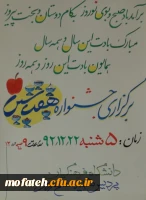 برآمد باد صبح و بوی نوروز بکام دوستان و بخت پیروز
مبارک بادت این سال و همه سال
همایون بادت این روز و همه روز
برگزاری جشنواره هفت سین
زمان: ۵ شنبه ۹۲،۱۲،۲۲ ساعت ۹
mofateh.cfu.ac.ir